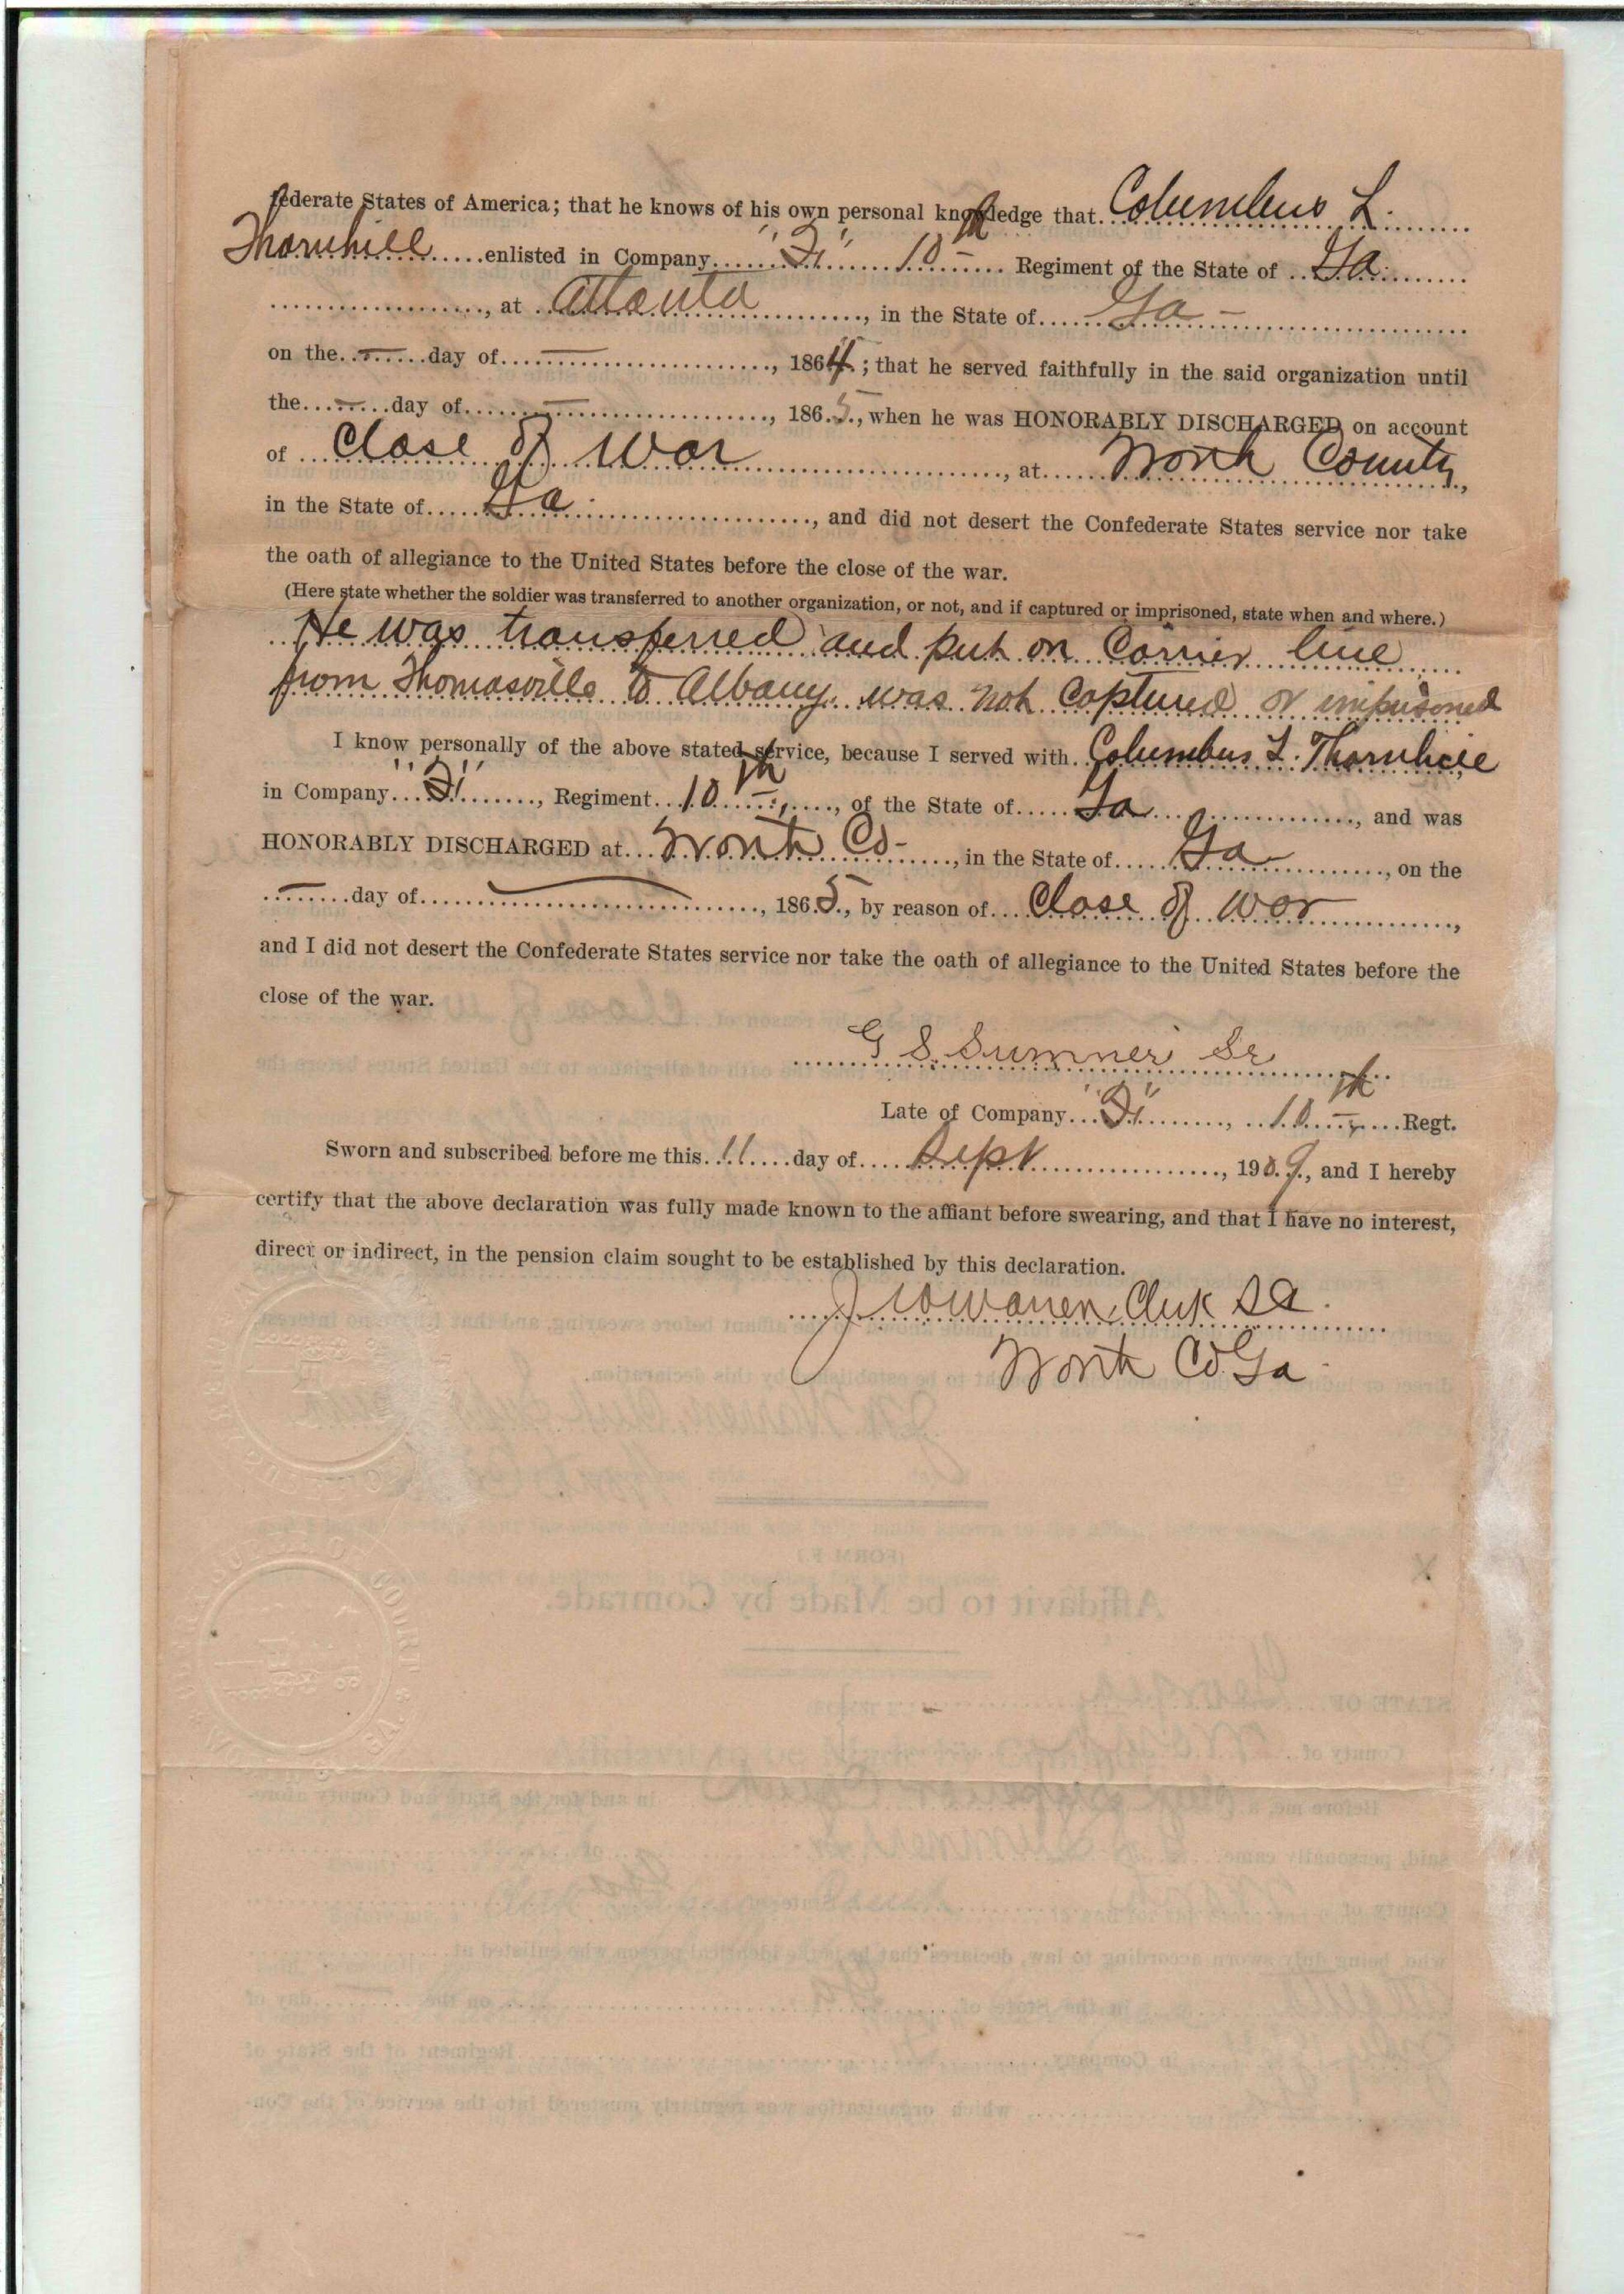 federate States of America; that he knows of his own personal knowledge that Columbus L.
Thornhill enlisted in Company "F" 10th Regiment of the State of Ga
, at Atlanta, in the State of Ga -
on the — day of —, 1864; that he served faithfully in the said organization until
the — day of —, 1865, when he was HONORABLY DISCHARGED on account
of Close of War, at Worth County,
in the State of Ga., and did not desert the Confederate States service nor take
the oath of allegiance to the United States before the close of the war.
(Here state whether the soldier was transferred to another organization, or not, and if captured or imprisoned, state when and where.)
He was transferred and put on Corrier line
from Thomasville to Albany. was not Captured or imprisoned
I know personally of the above stated service, because I served with Columbus L. Thornhill
in Company "F", Regiment 10th, of the State of Ga, and was
HONORABLY DISCHARGED at Worth Co-, in the State of Ga, on the
— day of —, 1865, by reason of Close of War,
and I did not desert the Confederate States service nor take the oath of allegiance to the United States before the
close of the war.
G S. Sumner Sr
Late of Company "F", 10th Regt.
Sworn and subscribed before me this 11 day of Sept, 1909, and I hereby
certify that the above declaration was fully made known to the affiant before swearing, and that I have no interest,
direct or indirect, in the pension claim sought to be established by this declaration.
J W Warren, Clerk S C.
Worth Co Ga.